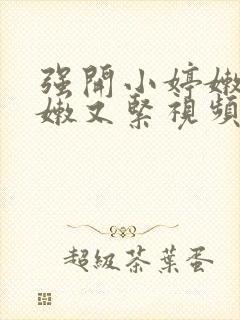 强開小婷嫩
嫩又緊視頻
超級茶葉蛋